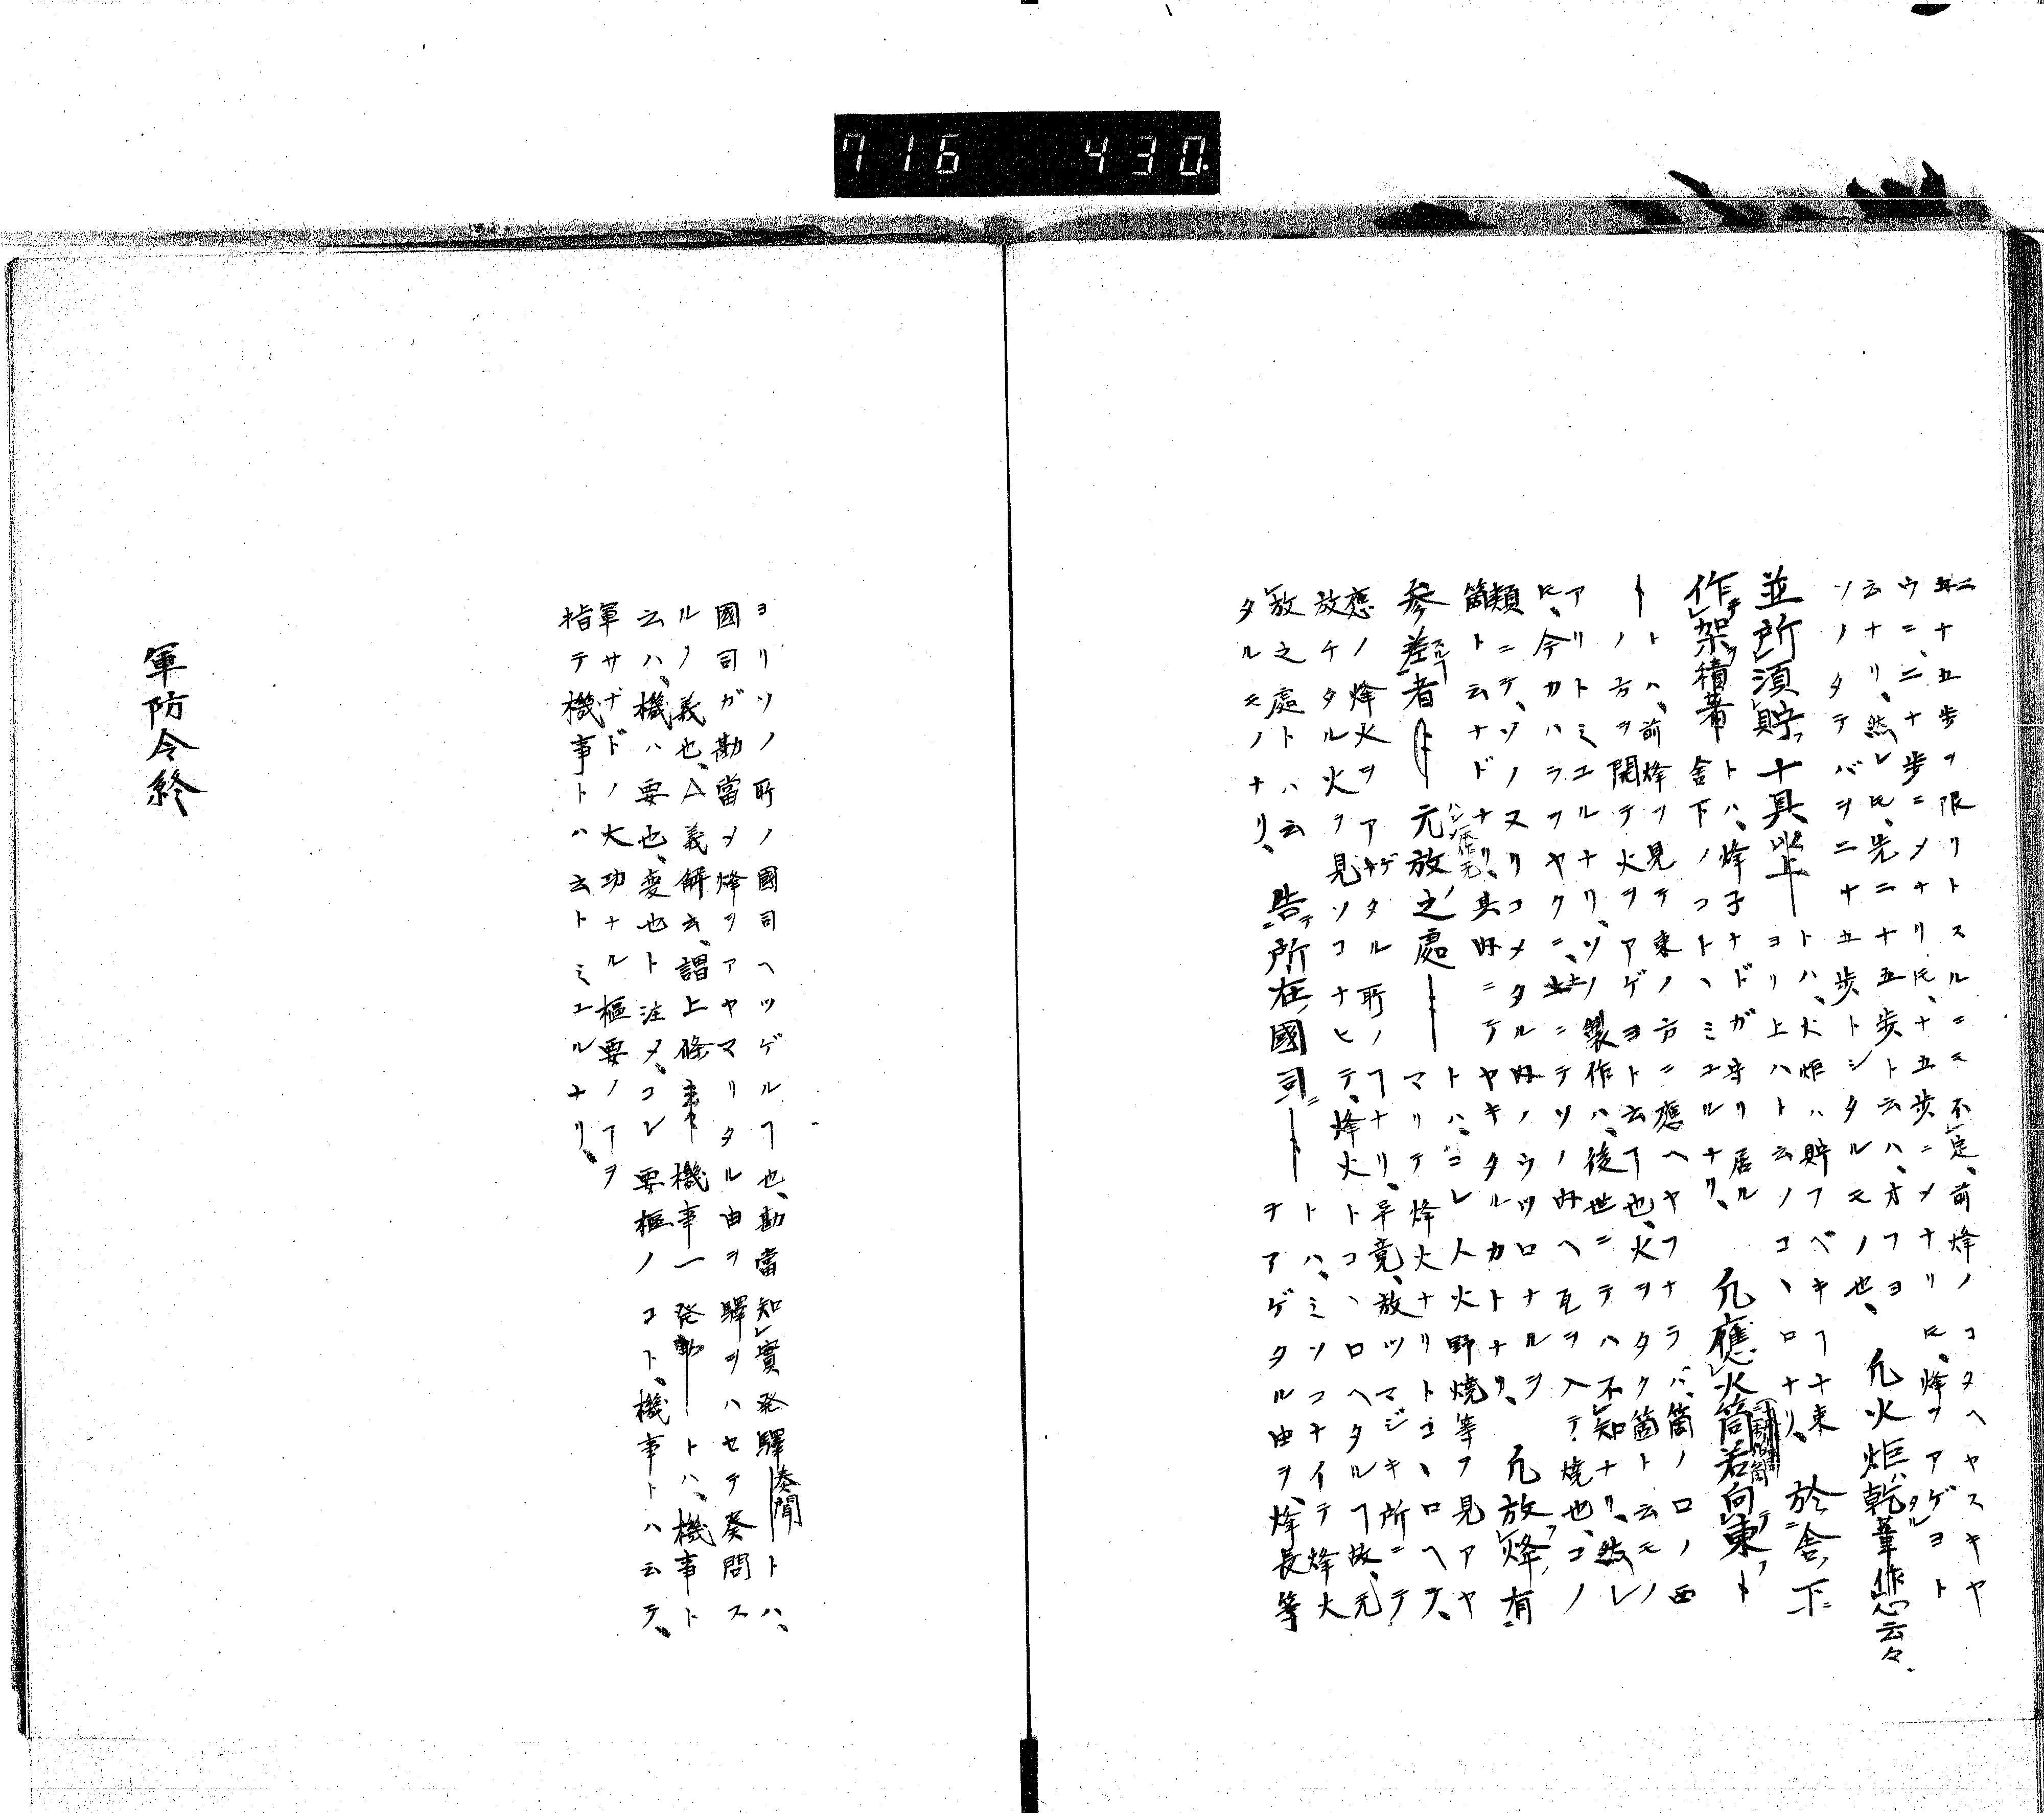 716 430
二十五歩ヲ限リトスルニモ不定、前烽ノコタヘヤスキヤ
ウニ、二十歩ニメナリ𪜈、十五歩ニメナリ𪜈、烽ヲアゲヨト
云ナリ、然レ𪜈、先ニ十五歩ト云ハ、オフヨ
ソノタテバヲ二十五歩トシタルモノ也、 凢火炬乾葦作心云々
並所須貯十具以上━トハ、火炬ハ貯フベキヿ十束
ヨリ上ハト云ノコヽロナリ、 於舎下
作架積著トハ、烽子ナドガ守リ居ル
舎下ノコトヽミユルナリ、 凢應火筒若向東━
━トハ、前烽フ見テ東ノ方ニ應ヘヤフナラバ、筒ノ口ノ西
ノ方ヲ開テ火ヲアゲヨト云ヿ也、火ヲタク筒ト云モノ
アリトミエルナリ、ソノ製作ハ、後世ニテハ不知ナリ、然レ
𪜈、今カハラヲヤクニ、土ニテソノ内ヘ瓦ヲ入テ焼也、コノ
類ニテ、ソノヌリコメタル内ノウツロナルヲ
筒ト云ナドナリ、其内ニテヤキタルカトナリ、 凢放烽有
参差者━元放之處━トハ、コレ人火野焼等ヲ見アヤ
マリテ烽火ナリトコヽロヘテ、
應ノ烽火ヲアゲタル所ノヿナリ、畢竟、放ツマジキ所ニテ
放チタル火ヲ見ソコナヒテ、烽火トコヽロヘタルヿ故、元
放之處トハ云 告所在國司━トハ、ミソコナイテ烽火
タルモノナリ、 ヲアゲタル由ヲ、烽長等
ヨリソノ所ノ國司ヘツゲルヿ也、勘當知實発驛奏聞トハ、
國司ガ勘當ヲ烽ヲアヤマリタル由ヲ驛ヲハセテ奏問ス
ルノ義也、△義解云、謂上條 機事一発動━トハ、機事ト
云ハ、機ハ要也、変也ト注メ、コレ要樞ノコト、機事トハ云テ、
軍サナドノ大功ナル樞要ノヿヲ
指テ機事トハ云トミエルナリ、
軍防令終